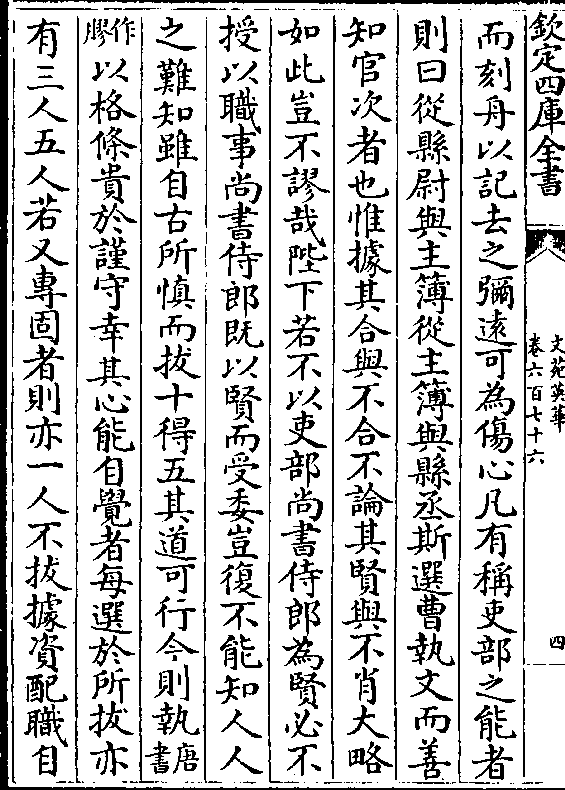 欽定四庫全書
文苑英華
卷六百七十六
四
而刻舟以記去之彌遠可為傷心凡有稱吏部之能者
則曰從縣尉與主簿從主簿與縣丞斯選曹執文而善
知官次者也惟據其合與不合不論其賢與不肖大略
如此豈不謬哉陛下若不以吏部尚書侍郎為賢必不
授以職事尚書侍郎既以賢而受委豈復不能知人人
之難知雖自古所慎而拔十得五其道可行今則執唐書
作膠以格條貴於謹守幸其心能自覺者每選於所拔亦
有三人五人若又專固者則亦一人不拔據資配職自